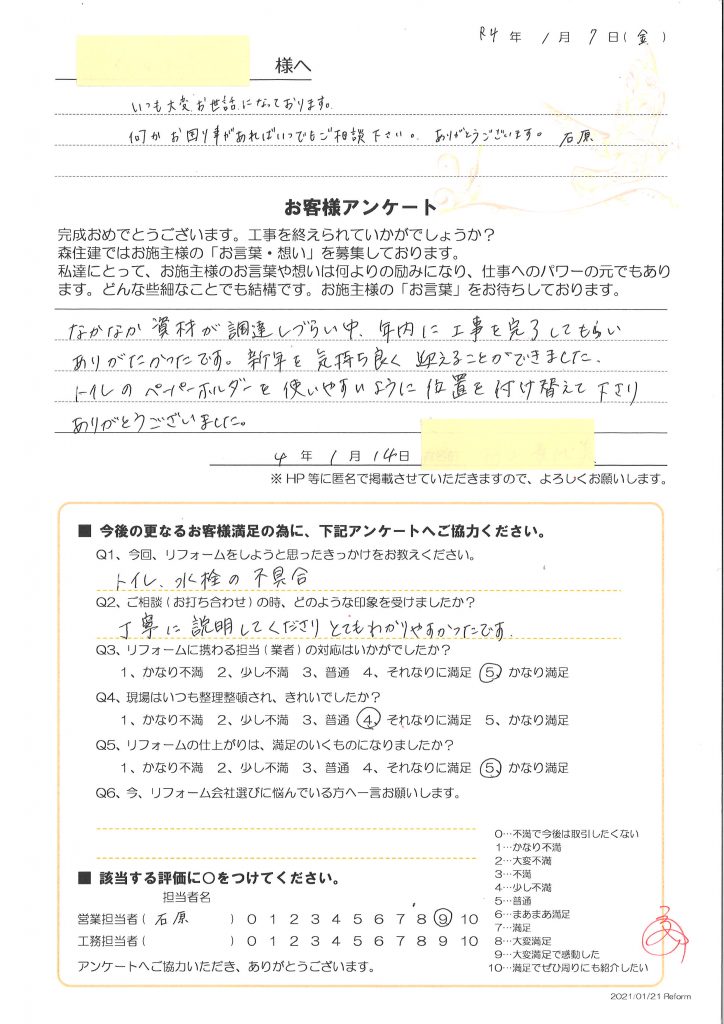 R4 年 1 月 7 日(金)
様へ
いつも大変お世話になっております。
何かお困り事があればいつでもご相談下さい。ありがとうございます。 石原
お客様アンケート
完成おめでとうございます。工事を終えられていかがでしょうか?
森住建ではお施主様の「お言葉・想い」を募集しております。
私達にとって、お施主様のお言葉や想いは何よりの励みになり、仕事へのパワーの元でもあり
ます。どんな些細なことでも結構です。お施主様の「お言葉」をお待ちしております。
なかなか資材が調達しづらい中、年内に工事を完了してもらい
ありがたかったです。新年を気持ち良く迎えることができました。
トイレのペーパーホルダーを使いやすいように位置を付け替えて下さり
ありがとうございました。
4 年 1 月 14 日
※HP等に匿名で掲載させていただきますので、よろしくお願いします。
■ 今後の更なるお客様満足の為に、下記アンケートへご協力ください。
Q1、今回、リフォームをしようと思ったきっかけをお教えください。
トイレ、水栓の不具合
Q2、ご相談(お打ち合わせ)の時、どのような印象を受けましたか?
丁寧に説明してくださりとてもわかりやすかったです。
Q3、リフォームに携わる担当(業者)の対応はいかがでしたか?
1、かなり不満 2、少し不満 3、普通 4、それなりに満足 5、かなり満足
Q4、現場はいつも整理整頓され、きれいでしたか?
1、かなり不満 2、少し不満 3、普通 4、それなりに満足 5、かなり満足
Q5、リフォームの仕上がりは、満足のいくものになりましたか?
1、かなり不満 2、少し不満 3、普通 4、それなりに満足 5、かなり満足
Q6、今、リフォーム会社選びに悩んでいる方へ一言お願いします。
■ 該当する評価に○をつけてください。
担当者名
営業担当者( 石原 ) 0 1 2 3 4 5 6 7 8 9 10
工務担当者( ) 0 1 2 3 4 5 6 7 8 9 10
アンケートへご協力いただき、ありがとうございます。
0…不満で今後は取引したくない
1…かなり不満
2…大変不満
3…不満
4…少し不満
5…普通
6…まあまあ満足
7…満足
8…大変満足
9…大変満足で感動した
10…満足でぜひ周りにも紹介したい
2021/01/21 Reform